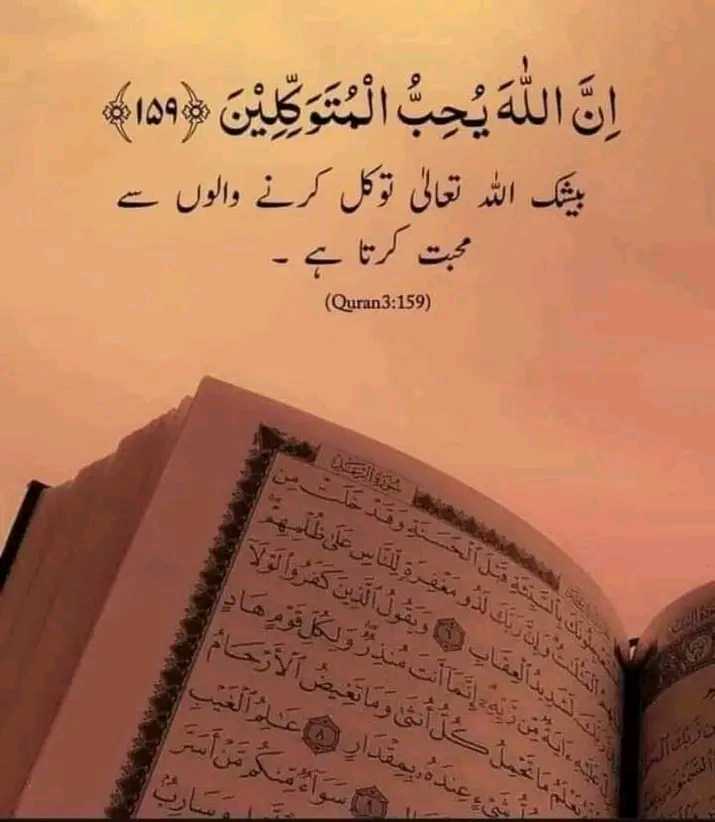 اِنَّ اللّٰهَ يُحِبُّ الْمُتَوَكِّلِيْنَ ﴿۱۵۹﴾
بیشک اللہ تعالیٰ توکل کرنے والوں سے
محبت کرتا ہے ۔
(Quran3:159)
سُورَةُ الرَّعْدِ
بِٱلسَّيِّئَةِ قَبْلَ ٱلْحَسَنَةِ وَقَدْ خَلَتْ مِن
ٱلْمَثُلَٰتُ وَإِنَّ رَبَّكَ لَذُو مَغْفِرَةٍ لِّلنَّاسِ عَلَىٰ ظُلْمِهِمْ
لَشَدِيدُ ٱلْعِقَابِ ٦ وَيَقُولُ ٱلَّذِينَ كَفَرُوا۟ لَوْلَآ
عَلَيْهِ ءَايَةٌ مِّن رَّبِّهِۦٓ إِنَّمَآ أَنتَ مُنذِرٌ وَلِكُلِّ قَوْمٍ هَادٍ
يَعْلَمُ مَا تَحْمِلُ كُلُّ أُنثَىٰ وَمَا تَغِيضُ ٱلْأَرْحَامُ
شَىْءٍ عِندَهُۥ بِمِقْدَارٍ ٨ عَٰلِمُ ٱلْغَيْبِ
٩ سَوَآءٌ مِّنكُم مَّنْ أَسَرَّ
وَسَارِبٌۢ